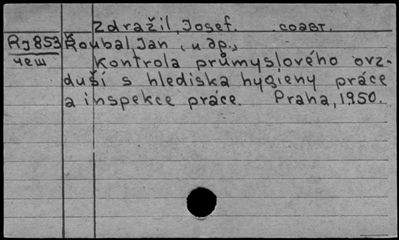 Zdražil, Josef. соавт.
RJ853 Řoubal, Jan, и др.,
чеш Kontrola průmyslového ovz-
duší s hlediska hygieny práce
a inspekce práce. Praha, 1950.